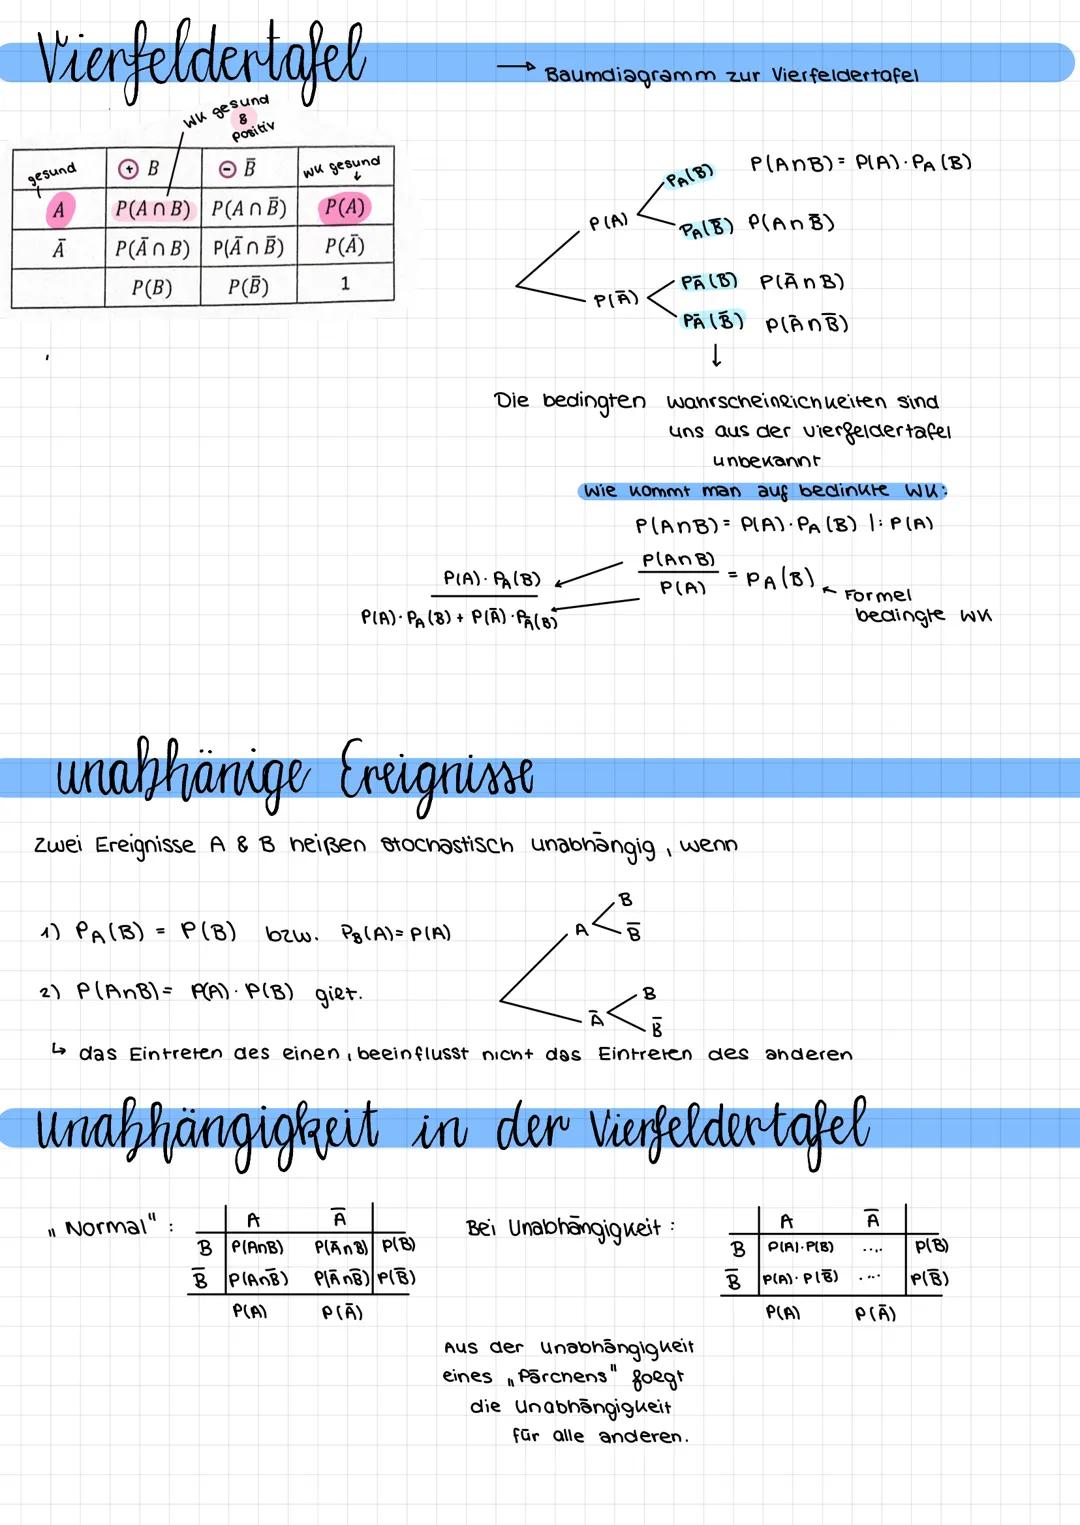 Vierfeldertafel
→ Baumdiagramm zur Vierfeldertafel
WK gesund
&
positiv
gesund
+ B
- B̅
WK gesund
A
P(A ∩ B)
P(A ∩ B̅)
P(A)
A̅
P(A̅ ∩ B)
P(A̅ ∩ B̅)
P(A̅)
P(B)
P(B̅)
1
P_A(B) P(A∩B) = P(A)·P_A(B)
P(A)
P_A(B̅) P(A∩B̅)
P_A̅(B) P(A̅∩B)
P(A̅)
P_A̅(B̅) P(A̅∩B̅)
↓
Die bedingten Wahrscheinlichkeiten sind
uns aus der Vierfeldertafel
unbekannt
Wie kommt man auf bedinkte WK:
P(A∩B) = P(A)·P_A(B) |: P(A)
P(A∩B)
P(A)
= P_A(B)
← Formel
bedingte WK
P(A)·P_A(B)
P(A)·P_A(B) + P(A̅)·P_A̅(B)
unabhänige Ereignisse
Zwei Ereignisse A & B heißen stochastisch unabhängig, wenn
1) P_A(B) = P(B) bzw. P_B(A) = P(A)
2) P(A∩B) = P(A)·P(B) gilt.
A
B
B̅
A̅
B
B̅
↳ das Eintreten des einen, beeinflusst nicht das Eintreten des anderen
Unabhängigkeit in der Vierfeldertafel
„Normal":
A A̅
B P(A∩B) P(A̅∩B) P(B)
B̅ P(A∩B̅) P(A̅∩B̅) P(B̅)
P(A) P(A̅)
Bei Unabhängigkeit:
A A̅
B P(A)·P(B) .... P(B)
B̅ P(A)·P(B̅) .... P(B̅)
P(A) P(A̅)
Aus der Unabhängigkeit
eines „Pärchens" folgt
die Unabhängigkeit
für alle anderen.